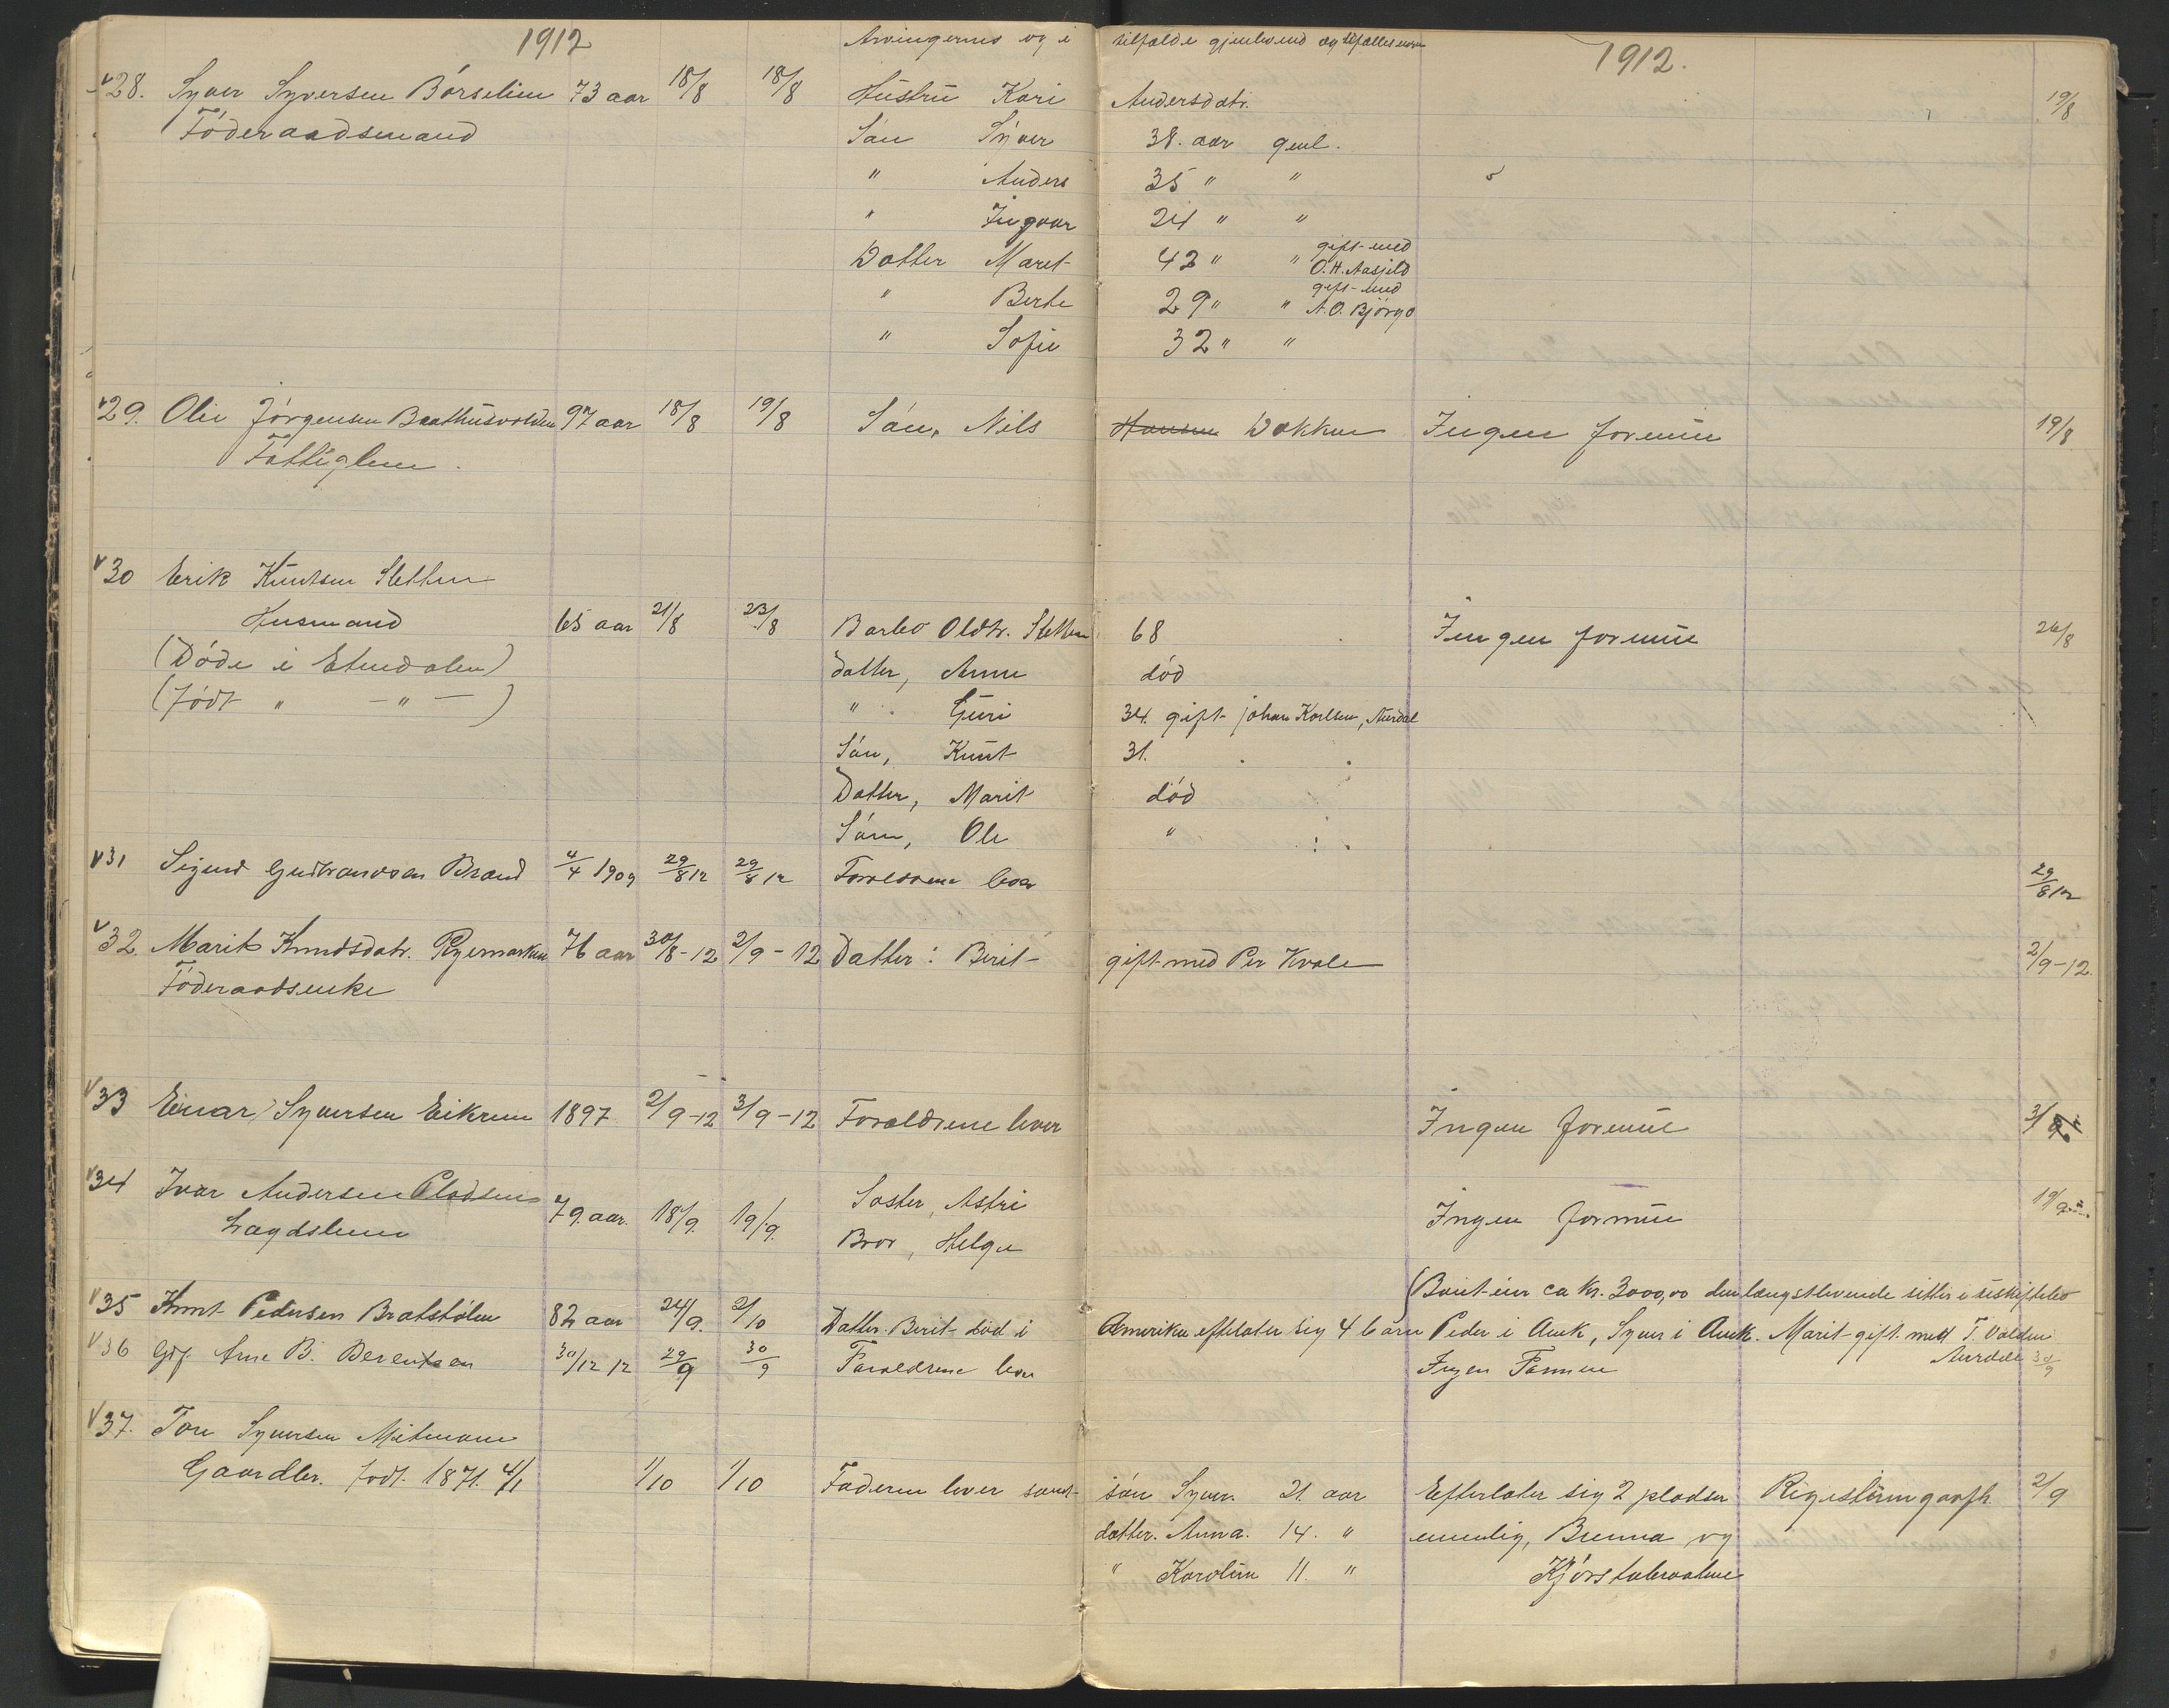 1912 Arvingernes og i tilfælde gjenlevend ægtefælles navn 1912.
28. Syver Syversen Börselien 73 aar 18/8 18/8 Hustru Kari Andersdatr. 19/8
Föderaadsmand Sön Syver 38. aar gml.
" Anders 35 " "
" Ingvar 24 " "
Datter Marit 42 " " gift med O.H. Aasjeld
" Berte 29 " " gift med A.O. Björgo
" Sofie 32 " "
29. Olie Jörgensen Baathusvolden 97 aar 18/8 19/8 Sön, Nils Hansen Dokken Ingen formue 19/8
Fattiglem.
30 Erik Knutsen Sletten
Husmand 65 aar 21/8 23/8 Barbo Oldtr. Sletten 68 Ingen formue 26/8
(Döde i Etnedalen) datter, Anne död
(Födt " — " —) " Guri 34. gift Johan Karlsen, Aurdal
Sön, Knut 31.
Datter, Marit död
Sön, Ole "
31 Sigurd Gudbrandsen Brand 4/4 1909 29/8 12 29/8 12 Forældrene lever 29/8 12
32. Marit Knudsdatr. Ryemarken 76 aar 30/8-12 2/9-12 Datter: Berit gift med Per Kvale 2/9-12.
Föderaadsenke
33 Einar Syversen Eikrem 1897 2/9-12 3/9-12 Forældrene lever Ingen formue 3/9
34 Ivar Andersen Pladsen 79 aar. 18/9. 19/9. Söster, Astri Ingen formue 19/9
Lægdslem Bror, Helge
(Boet eier ca Kr. 3000,00 den længstlevende sitter i uskiftebo
35 Knut Pedersen Bratstölen 82 aar 24/9. 2/10 Datter Berit död i Amerika efterlater sig 4 börn Peder i Amk, Syver i Amk. Marit gift med T. Volden Aurdal
36 Gdf. Arne B. Berentsen 30/12 12 29/9 30/9 Forældrene lever Ingen Formue 30/9
37. Tore Syversen Mitmoen
Gaardbr. födt. 1871. 4/1 1/10 1/10 Faderen lever samt sön Syver. 21. aar Efterlater sig 2 pladser Registreringsforh. 2/9
datter. Anna. 14. " nemlig, Brenna og
" Karoline 11. " Kjörstaberaaene